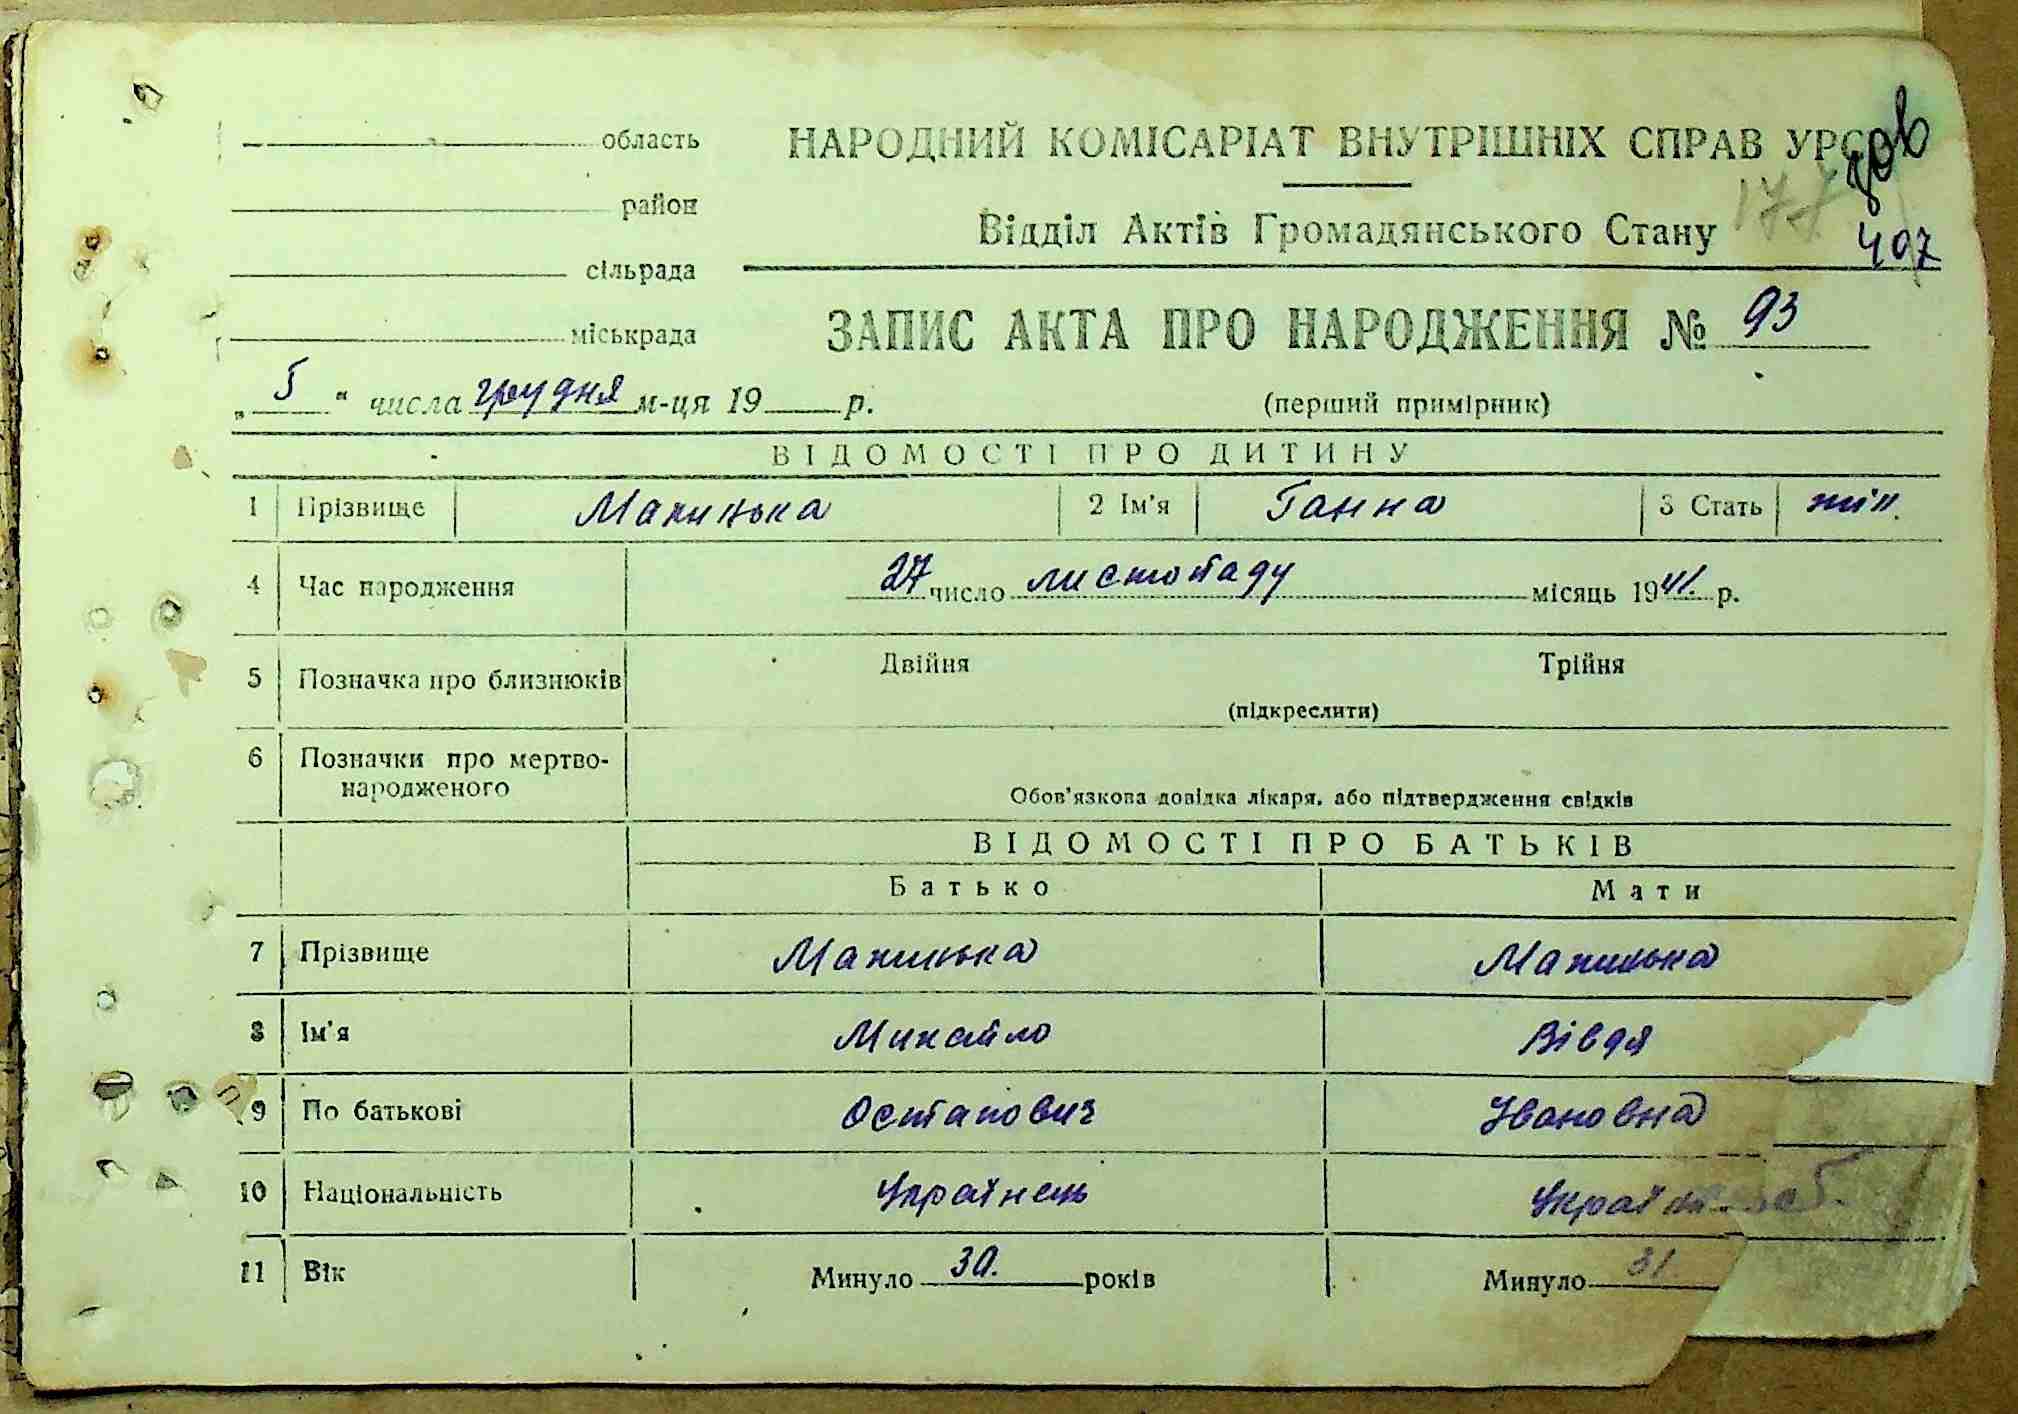 область
НАРОДНИЙ КОМІСАРІАТ ВНУТРІШНІХ СПРАВ УРС
район
177
Відділ Актів Громадянського Стану
407
сільрада
міськрада
ЗАПИС АКТА ПРО НАРОДЖЕННЯ № 93
„ 5 " числа грудня м-ця 19 р.
(перший примірник)
ВІДОМОСТІ ПРО ДИТИНУ
1 Прізвище 2 Ім'я Ганна 3 Стать жін.
4 Час народження 27 число листопаду місяць 1941. р.
5 Позначка про близнюків Двійня Трійня
(підкреслити)
6 Позначки про мертво-
народженого
Обов'язкова довідка лікаря, або підтвердження свідків
ВІДОМОСТІ ПРО БАТЬКІВ
Батько Мати
7 Прізвище
8 Ім'я Михайло Вівдя
9 По батькові Остапович Івановна
10 Національність Українець
11 Вік Минуло 30. років Минуло 31